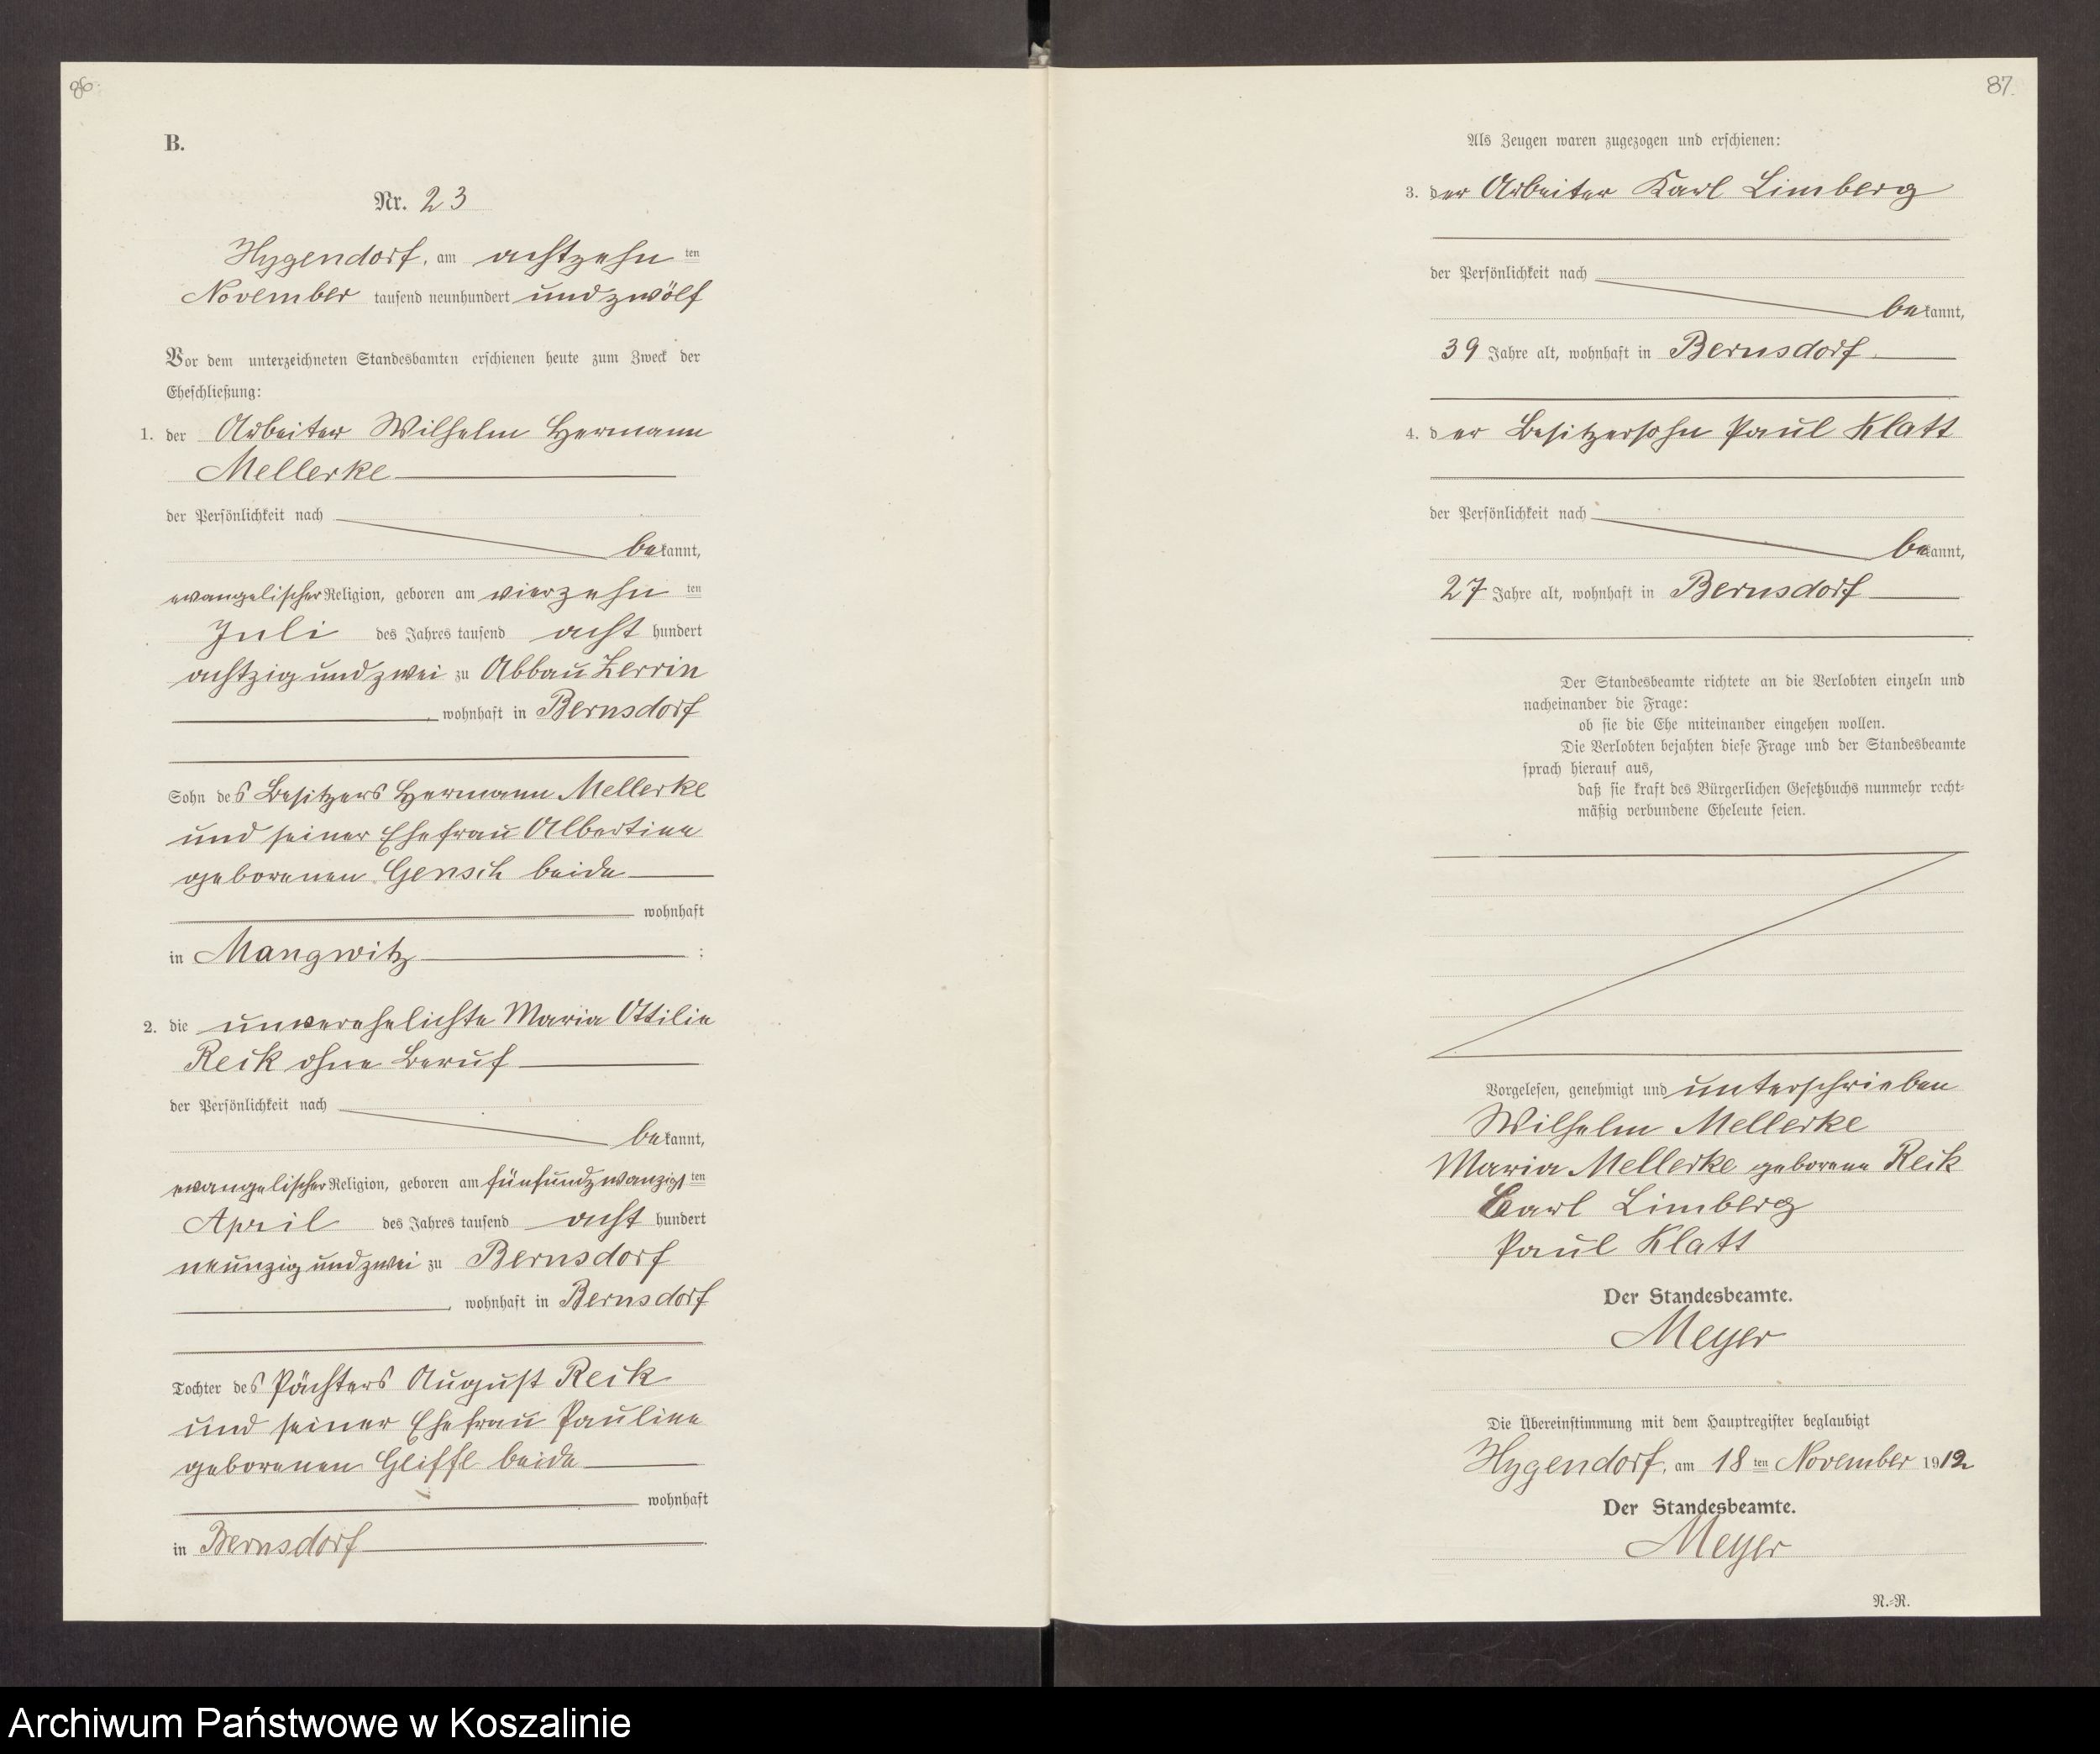 86.
B.
Nr. 23
Hygendorf, am achtzehn ten
November tausend neunhundert und zwölf
Vor dem unterzeichneten Standesbamten erschienen heute zum Zweck der
Eheschließung:
1. der Arbeiter Wilhelm Hermann
Mellerke
der Persönlichkeit nach
bekannt,
evangelischer Religion, geboren am vierzehn ten
Juli des Jahres tausend acht hundert
achtzig und zwei zu Abbau Zerrin
, wohnhaft in Bernsdorf
Sohn des Besitzers Hermann Mellerke
und seiner Ehefrau Albertine
geborenen Gensch beide
wohnhaft
in Mangwitz :
2. die unverehelichte Maria Ottilie
Reik ohne Beruf
der Persönlichkeit nach
bekannt,
evangelischer Religion, geboren am fünfundzwanzigs ten
April des Jahres tausend acht hundert
neunzig und zwei zu Bernsdorf
, wohnhaft in Bernsdorf
Tochter des Pächters August Reik
und seiner Ehefrau Pauline
geborenen Gliffe beide
wohnhaft
in Bernsdorf
87.
Als Zeugen waren zugezogen und erschienen:
3. der Arbeiter Karl Limberg
der Persönlichkeit nach
bekannt,
39 Jahre alt, wohnhaft in Bernsdorf
4. der Besitzersohn Paul Klatt
der Persönlichkeit nach
bekannt,
27 Jahre alt, wohnhaft in Bernsdorf
Der Standesbeamte richtete an die Verlobten einzeln und
nacheinander die Frage:
ob sie die Ehe miteinander eingehen wollen.
Die Verlobten bejahten diese Frage und der Standesbeamte
sprach hierauf aus,
daß sie kraft des Bürgerlichen Gesetzbuchs nunmehr recht-
mäßig verbundene Eheleute seien.
Vorgelesen, genehmigt und unterschrieben
Wilhelm Mellerke
Maria Mellerke geborene Reik
Carl Limberg
Paul Klatt
Der Standesbeamte.
Meyer
Die Übereinstimmung mit dem Hauptregister beglaubigt
Hygendorf, am 18 ten November 1912
Der Standesbeamte.
Meyer
N.-R.
Archiwum Państwowe w Koszalinie